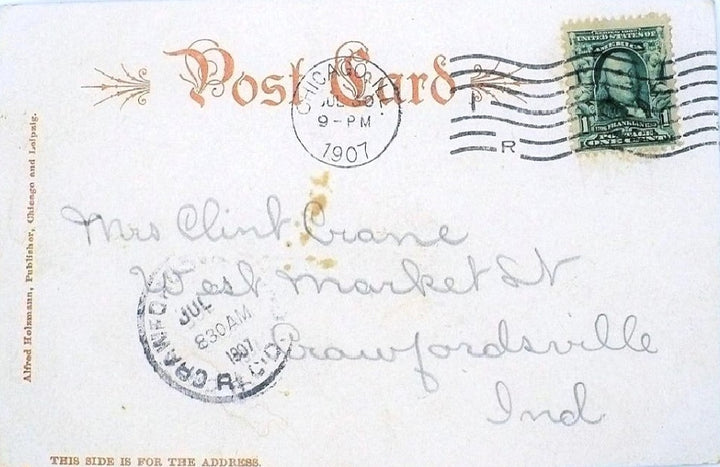 Post Card
CHICAGO, ILL.
JUL
9-PM
1907
R
SERIES 1902
UNITED STATES OF
AMERICA
1 FRANKLIN 1
POSTAGE
ONE CENT
Mrs Clint Crane
West Market St
Crawfordsville
Ind
JUL
830AM
1907
REC'D
Alfred Holzmann, Publisher, Chicago and Leipzig.
THIS SIDE IS FOR THE ADDRESS.